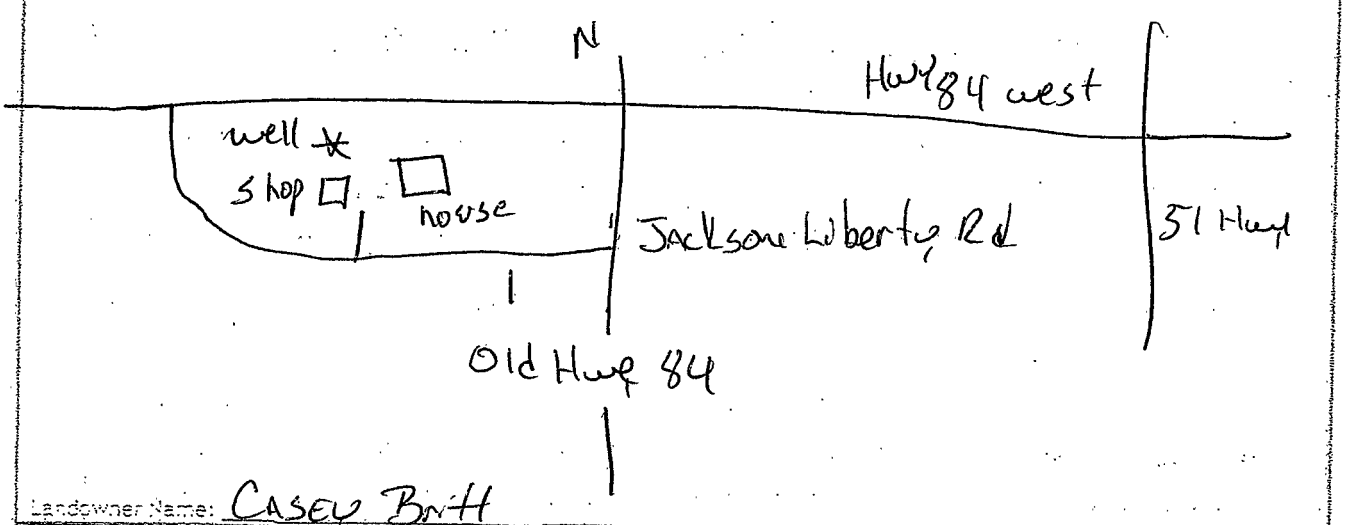 N
Hwy 84 west
well
shop
house
Jackson Liberty Rd
51 Hwy
Old Hwy 84
Landowner Name: CASEY Britt